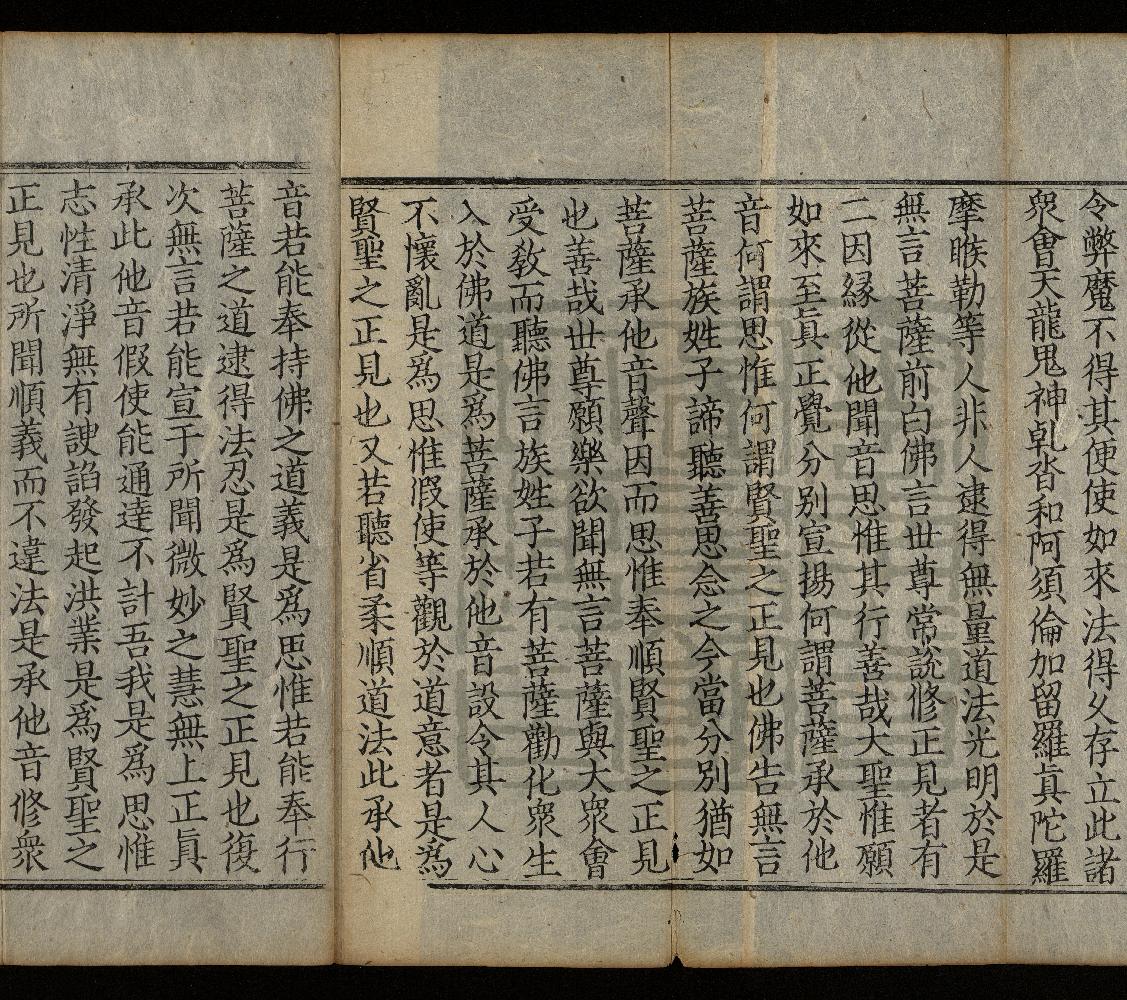 令弊魔不得其使使如來法得久存立此諸
衆會天龍鬼神乹沓和阿須倫加留羅真陀羅
摩睺勒等人非人逮得無量道法光明於是
無言菩薩前白佛言世尊常說修正見者有
二因緣從他聞音思惟其行善哉大聖惟願
如來至真正覺分別宣揚何謂菩薩承於他
音何謂思惟何謂賢聖之正見也佛告無言
菩薩族姓子諦聽善思念之今當分別猶如
菩薩承他音聲因而思惟奉順賢聖之正見
也善哉世尊願樂欲聞無言菩薩與大衆會
受教而聽佛言族姓子若有菩薩勸化衆生
入於佛道是為菩薩承於他音設令其人心
不懷亂是為思惟假使等觀於道意者是為
賢聖之正見也又若聽省柔順道法此承他
音若能奉持佛之道義是為思惟若能奉行
菩薩之道逮得法忍是為賢聖之正見也復
次無言若能宣于所聞微妙之慧無上正真
承此他音假使能通達不計吾我是為思惟
志性清淨無有諛諂發起洪業是為賢聖之
正見也所聞順義而不違法是承他音修衆